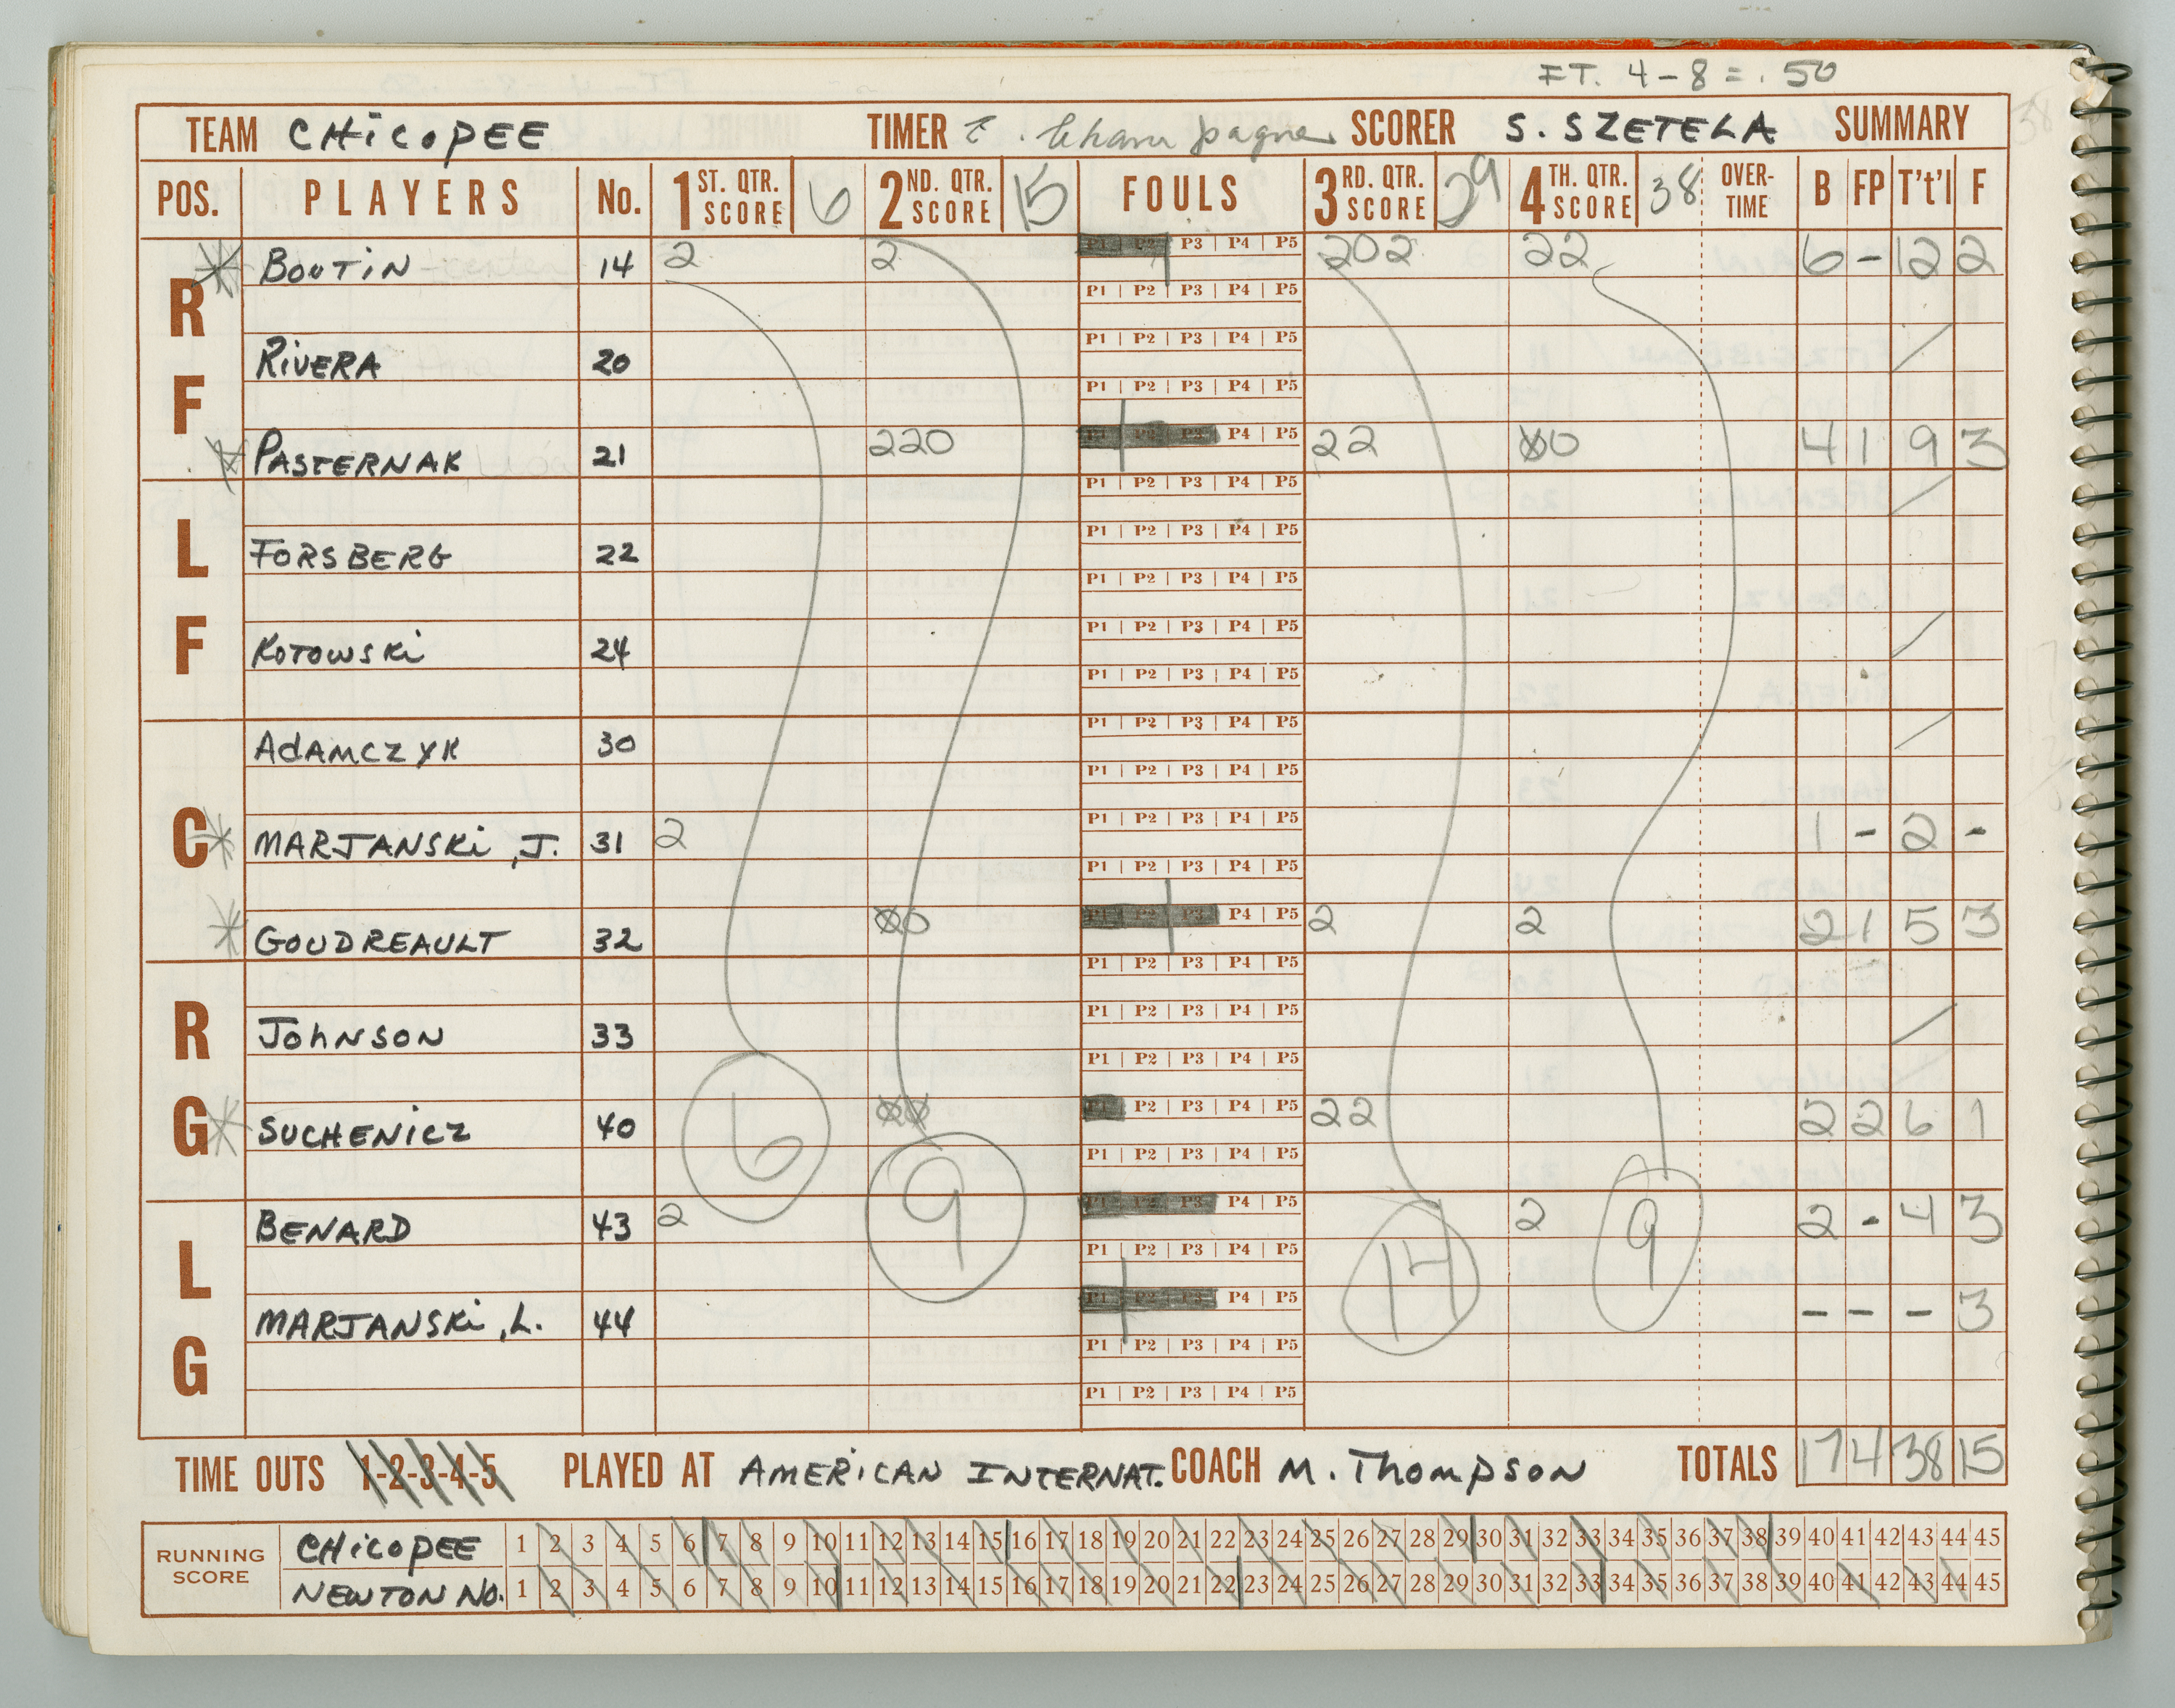 FT. 4-8 = .50
TEAM CHICOPEE TIMER SCORER S. SZETELA SUMMARY
POS. PLAYERS No. 1 ST. QTR. SCORE 6 2 ND. QTR. SCORE 15 FOULS 3 RD. QTR. SCORE 29 4 TH. QTR. SCORE 38 OVER-TIME B FP T't'l F
RF
BOUTIN 14 2 2 P1 P2 P3 P4 P5 202 22 6 - 12 2
P1 P2 P3 P4 P5
RIVERA 20 P1 P2 P3 P4 P5
P1 P2 P3 P4 P5
PASTERNAK 21 220 P1 P2 P3 P4 P5 22 00 4 1 9 3
LF
P1 P2 P3 P4 P5
FORSBERG 22 P1 P2 P3 P4 P5
P1 P2 P3 P4 P5
KOTOWSKI 24 P1 P2 P3 P4 P5
P1 P2 P3 P4 P5
C
ADAMCZYK 30 P1 P2 P3 P4 P5
P1 P2 P3 P4 P5
MARJANSKI, J. 31 2 P1 P2 P3 P4 P5 1 - 2 -
P1 P2 P3 P4 P5
GOUDREAULT 32 00 P1 P2 P3 P4 P5 2 2 2 1 5 3
RG
P1 P2 P3 P4 P5
JOHNSON 33 P1 P2 P3 P4 P5
P1 P2 P3 P4 P5
SUCHENICZ 40 00 P1 P2 P3 P4 P5 22 2 2 6 1
P1 P2 P3 P4 P5
LG
BENARD 43 2 P1 P2 P3 P4 P5 2 2 - 4 3
P1 P2 P3 P4 P5
MARJANSKI, L. 44 P1 P2 P3 P4 P5 - - - 3
P1 P2 P3 P4 P5
P1 P2 P3 P4 P5
6 9 14 9
TIME OUTS 1-2-3-4-5 PLAYED AT AMERICAN INTERNAT. COACH M. Thompson TOTALS 17 4 38 15
RUNNING SCORE
CHICOPEE 1 2 3 4 5 6 7 8 9 10 11 12 13 14 15 16 17 18 19 20 21 22 23 24 25 26 27 28 29 30 31 32 33 34 35 36 37 38 39 40 41 42 43 44 45
NEWTON NO. 1 2 3 4 5 6 7 8 9 10 11 12 13 14 15 16 17 18 19 20 21 22 23 24 25 26 27 28 29 30 31 32 33 34 35 36 37 38 39 40 41 42 43 44 45